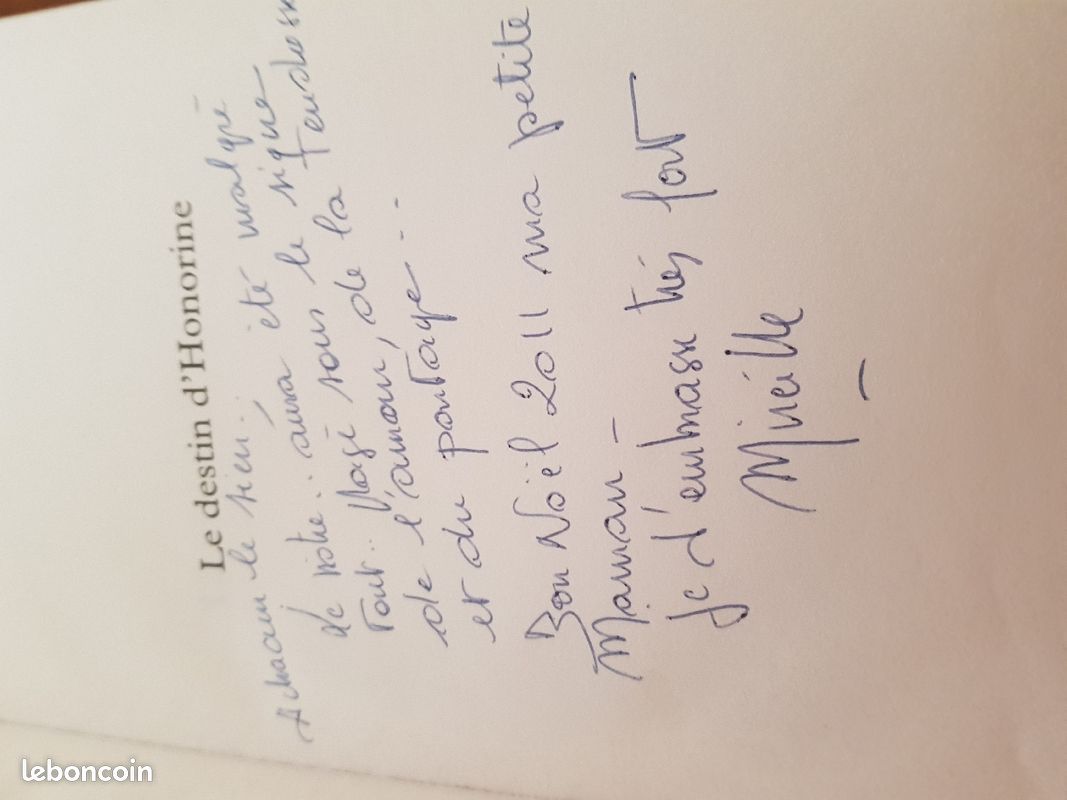 Le destin d'Honorine
A chacun le sien.. été malgré
le nôtre.. aura sous le signe
tout.. placé de la tendresse
de l'amour,
et du partage...
Bon Noël 2011 ma petite
Maman –
Je t'embrasse très fort
Mireille
leboncoin